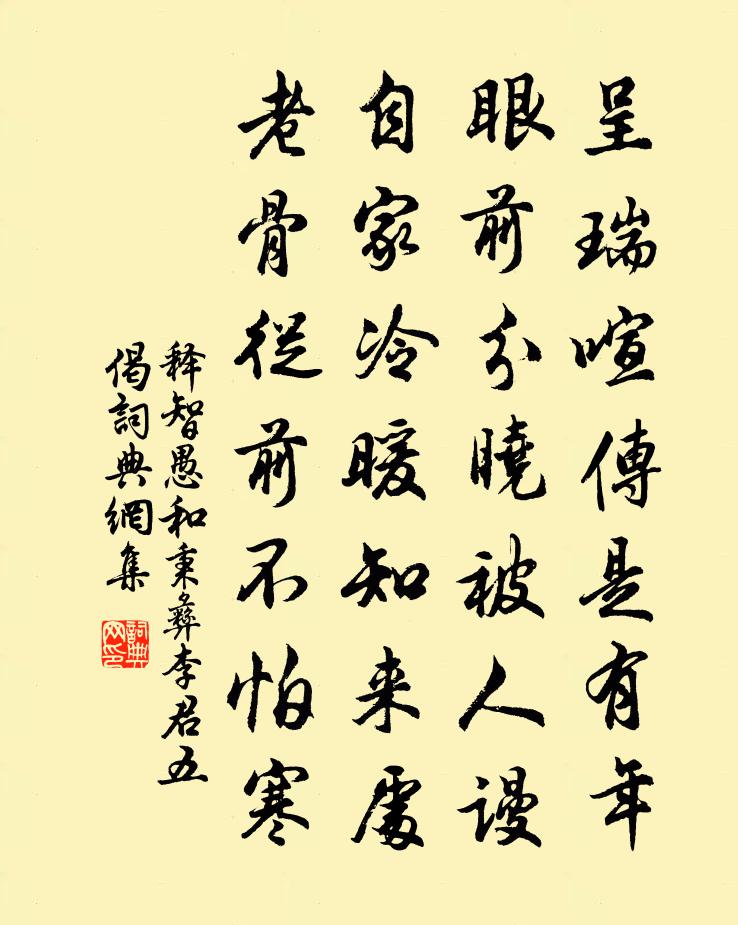 呈瑞喧傳是有年
眼前分曉被人謾
自家冷暖知来處
老骨從前不怕寒
释智愚和秉彝李君五
偈詞典網集
詞典網印